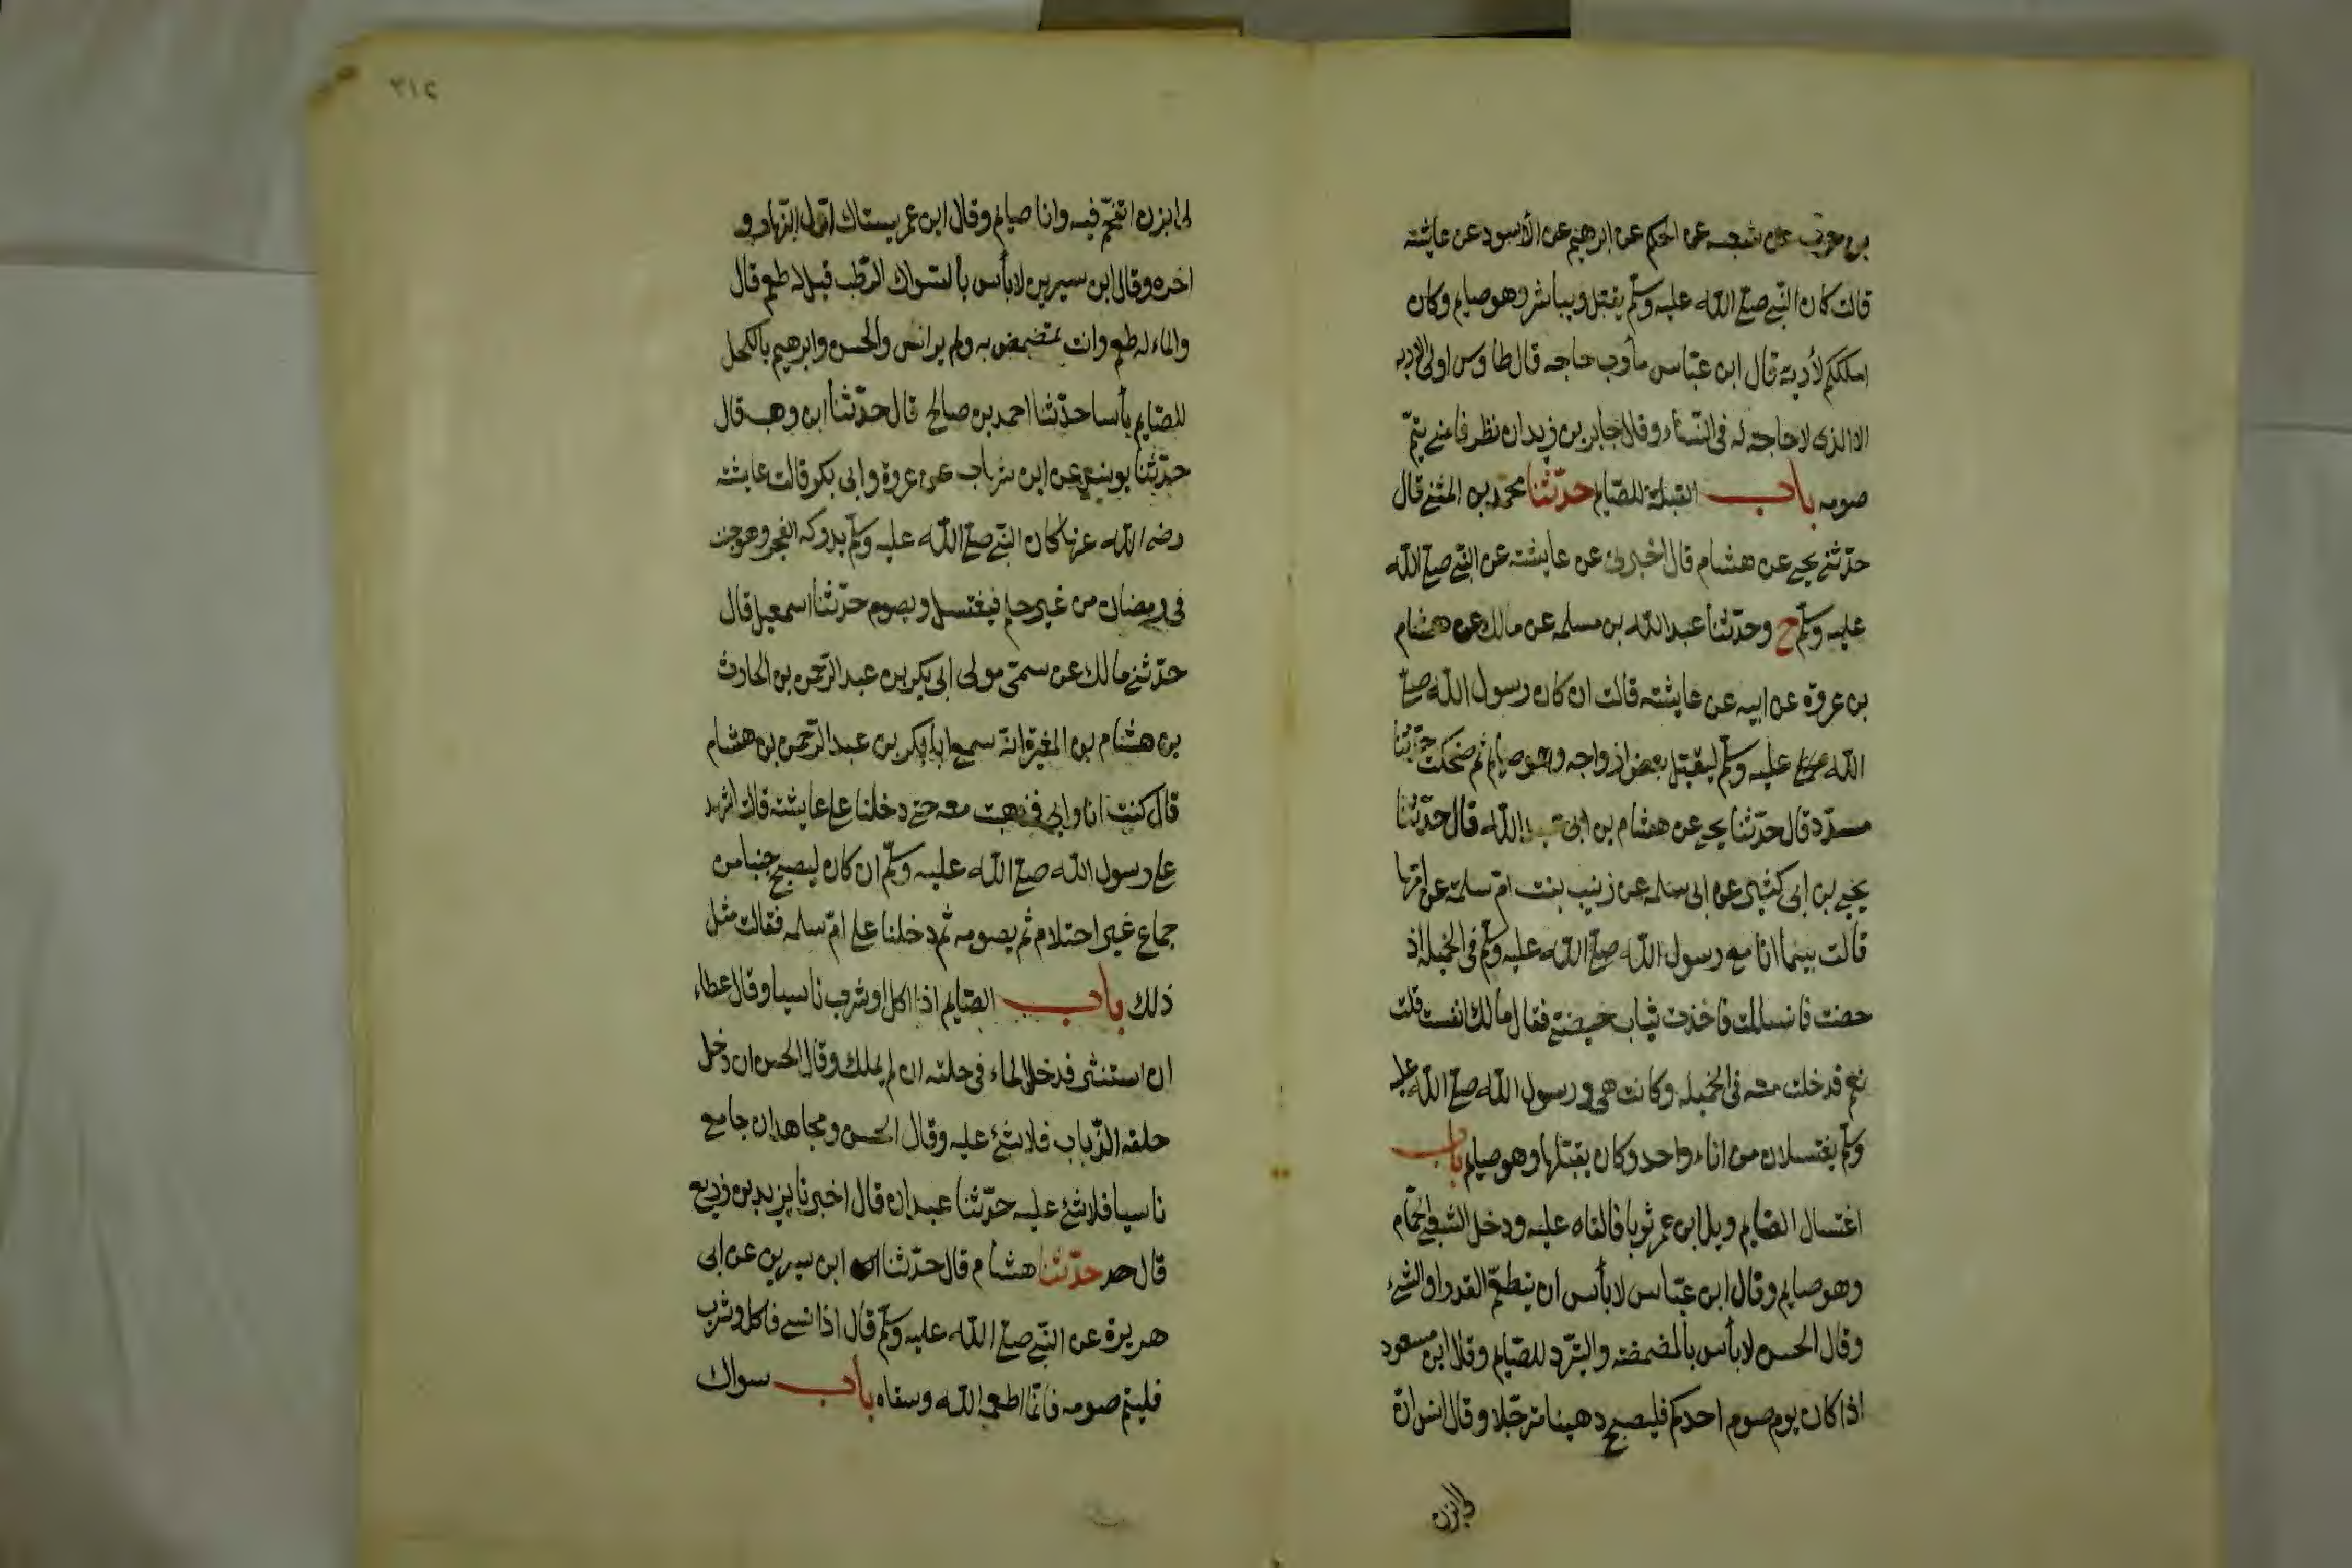 بن حرب عن شعبه عن الحكم عن ابرهيم عن الأسود عن عايشته
قالت كان النبي صلع الله عليه وسلم يقبل ويباشر وهو صايم وكان
املككم لأربه قال ابن عباس مأرب حاجه قال طاوس اولى الاربه
الا الذى لا حاجته له فى النساء وقال جابر بن زيد ان نظر فامنى يتم
صومه باب القبلة للصايم حدثنا محمد بن المثنى قال
حدثنى يحيى عن هشام قال اخبرنى عن عايشته عن النبي صلع الله
عليه وسلم ح وحدثنا عبد الله بن مسلمه عن مالك عن هشام
بن عروة عن ابيه عن عايشته قالت ان كان رسول الله صلع
الله عليه وسلم ليقبل بعض ازواجه وهو صايم ثم ضحكت حدثنا
مسدد قال حدثنا يحيى عن هشام بن ابى عبد الله قال حدثنا
يحيى بن ابى كثير عن ابى سلمه عن زينب بنت ام سلمة عن امها
قالت بينما انا مع رسول الله صلع الله عليه وسلم فى الخميله اذ
حضت فانسللت فاخذت ثياب حيضتى فقال مالك انفست قلت
نعم فدخلت معه فى الخميله وكانت هى ورسول الله صلع الله عليه
وسلم يغتسلان من اناء واحد وكان يقبلها وهو صايم باب
اغتسال الصايم وبل ابن عمر ثوبا فالقاه عليه ودخل الشعبى الحمام
وهو صايم وقال ابن عباس لا بأس ان يتطعم القدر او الشىء
وقال الحسن لا بأس بالمضمضته والتبرد للصايم وقال ابن مسعود
اذا كان يوم صوم احدكم فليصبح دهينا مترجلا وقال انس ان
لى ابزن
٣١٢
لى ابزن اتقحم فيه وانا صايم وقال ابن عمر يستاك اول النهار و
اخره وقال ابن سيرين لا بأس بالسواك الرطب قيل له طعم قال
والماء له طعم وانت تمضمض به ولم ير انس والحسن وابرهيم بالكحل
للصايم بأسا حدثنا احمد بن صالح قال حدثنا ابن وهب قال
حدثنا يونس عن ابن شهاب عن عروة وابى بكر قالت عايشته
رضى الله عنها كان النبي صلع الله عليه وسلم يدركه الفجر وهو جنب
فى رمضان من غير حلم فيغتسل ويصوم حدثنا اسمعيل قال
حدثنى مالك عن سمى مولى ابى بكر بن عبد الرحمن بن الحارث
بن هشام بن المغيرة انه سمع ابا بكر بن عبد الرحمن بن هشام
قال كنت انا وابى فذهبت معه حتى دخلنا على عايشته قالت اشهد
على رسول الله صلع الله عليه وسلم ان كان ليصبح جنبا من
جماع غير احتلام ثم يصومه ثم دخلنا على ام سلمه فقالت مثل
ذلك باب الصايم اذا اكل او شرب ناسيا وقال عطاء
ان استنثر فدخل الماء فى حلقه ان لم يملك وقال الحسن ان دخل
حلقه الذباب فلا شئ عليه وقال الحسن ومجاهد ان جامع
ناسيا فلا شئ عليه حدثنا عبدان قال اخبرنا يزيد بن زريع
قال حدثنا هشام قال حدثنا ابن سيرين عن ابى
هريرة عن النبي صلع الله عليه وسلم قال اذا نسى فاكل وشرب
فليتم صومه فانما اطعمه الله وسقاه باب سواك